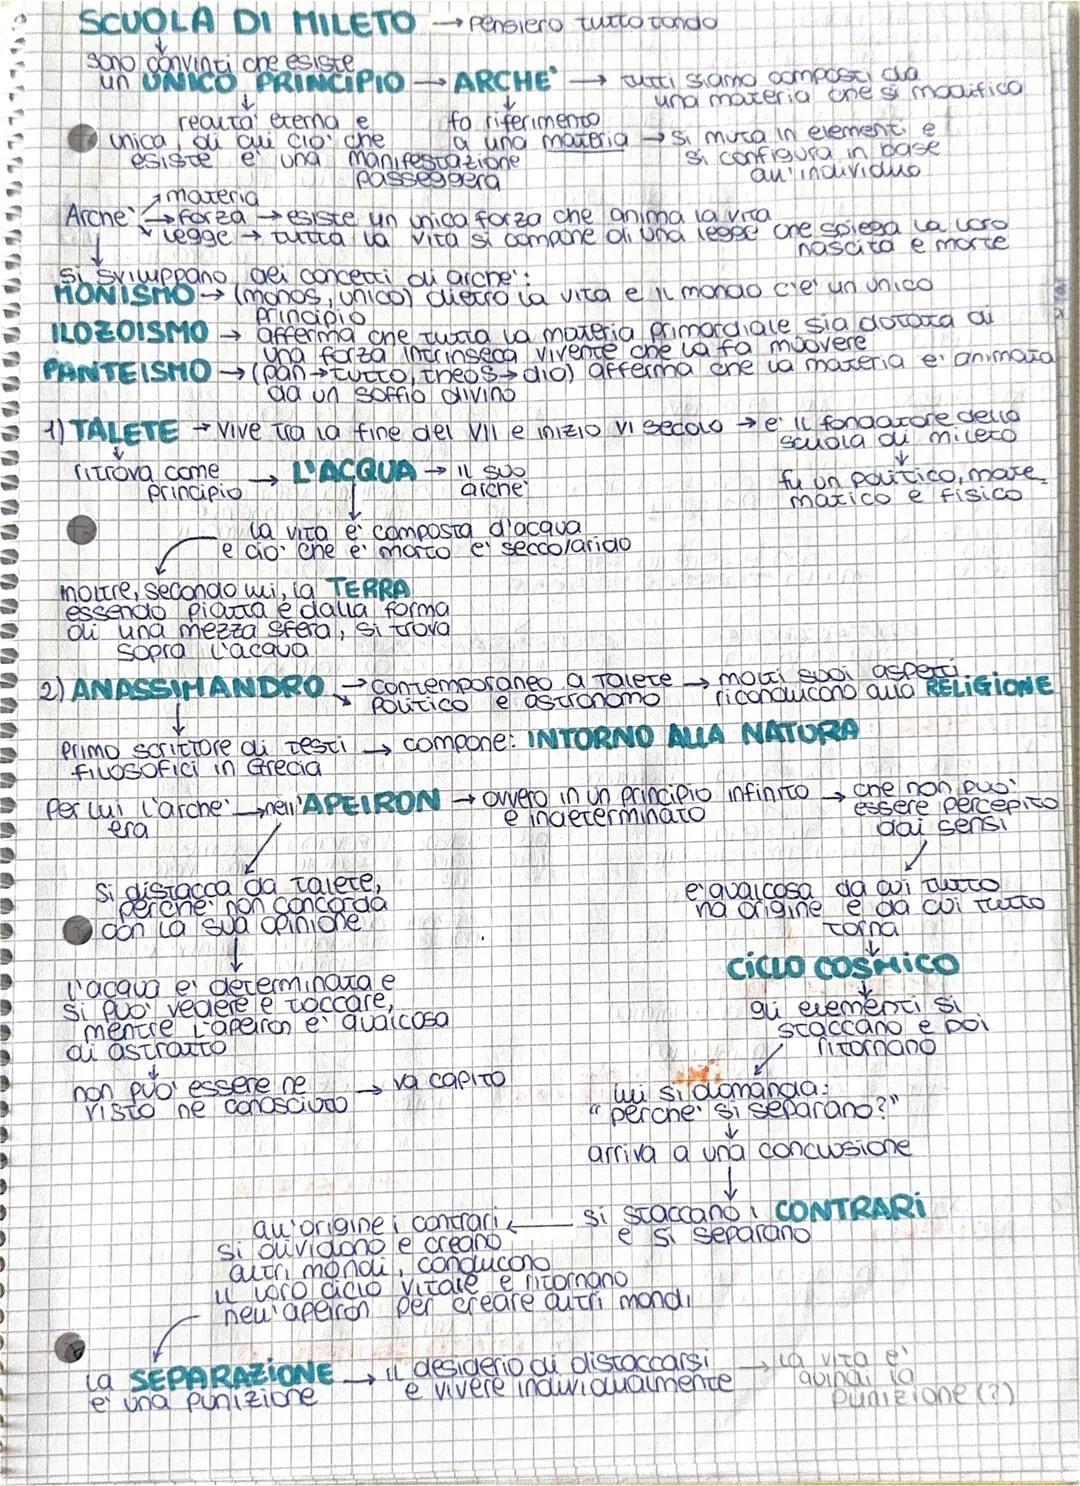 SCUOLA DI MILETO → pensiero tutto tondo
sono convinti che esiste
un UNICO PRINCIPIO → ARCHE' → tutti siamo composti da
una materia che si modifica
realtà eterna e
unica, di cui cio' che
esiste e' una manifestazione
passeggera
fa riferimento
a una materia → si muta in elementi e
si configura in base
all'individuo
Arche' → materia
→ forza → esiste un unica forza che anima la vita
→ legge → tutta la vita si compone di una legge che spiega la loro
nascita e morte
si sviluppano dei concetti di arche':
MONISMO → (monos, unico) dietro la vita e il mondo c'e' un unico
principio
ILOZOISMO → afferma che tutta la materia primordiale sia dotata di
una forza intrinseca vivente che la fa muovere
PANTEISMO → (pan→tutto, theos→dio) afferma che la materia e' animata
da un soffio divino
1) TALETE → vive tra la fine del VII e inizio VI secolo → e' il fondatore della
scuola di mileto
fu un politico, mate-
matico e fisico
ritrova come
principio → L'ACQUA → il suo
arche'
la vita e' composta d'acqua
e cio' che e' morto e' secco/arido
inoltre, secondo lui, la TERRA
essendo piatta e dalla forma
di una mezza sfera, si trova
sopra l'acqua
2) ANASSIMANDRO → contemporaneo a Talete → molti suoi aspetti
politico e astronomo
riconducono alla RELIGIONE
primo scrittore di testi → compone: INTORNO ALLA NATURA
filosofici in Grecia
per lui l'arche' → nell'APEIRON → ovvero in un principio infinito → che non puo'
era
e indeterminato
essere percepito
dai sensi
si distacca da talete,
perche' non concorda
con la sua opinione
l'acqua e' determinata e
si puo' vedere e toccare,
mentre l'apeiron e' qualcosa
di astratto
non puo' essere ne → va capito
visto ne conosciuto
e' qualcosa da cui tutto
ha origine e da cui tutto
torna
CICLO COSMICO
gli elementi si
staccano e poi
ritornano
lui si domanda:
"perche' si separano?"
arriva a una conclusione
si staccano i CONTRARI
e si separano
all'origine i contrari
si dividono e creano
altri mondi, conducono
il loro ciclo vitale e ritornano
nell'apeiron per creare altri mondi
la SEPARAZIONE → il desiderio di distaccarsi → la vita e'
e' una punizione
e vivere individualmente
quindi la
punizione (?)